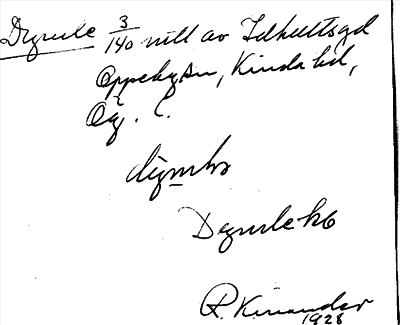 Dyrule 3/140 mtl av Idhultsgd
Oppeby sn, Kinda hd,
Ög. l.
dyruls
Dyrulehb
R. Kinander
1928